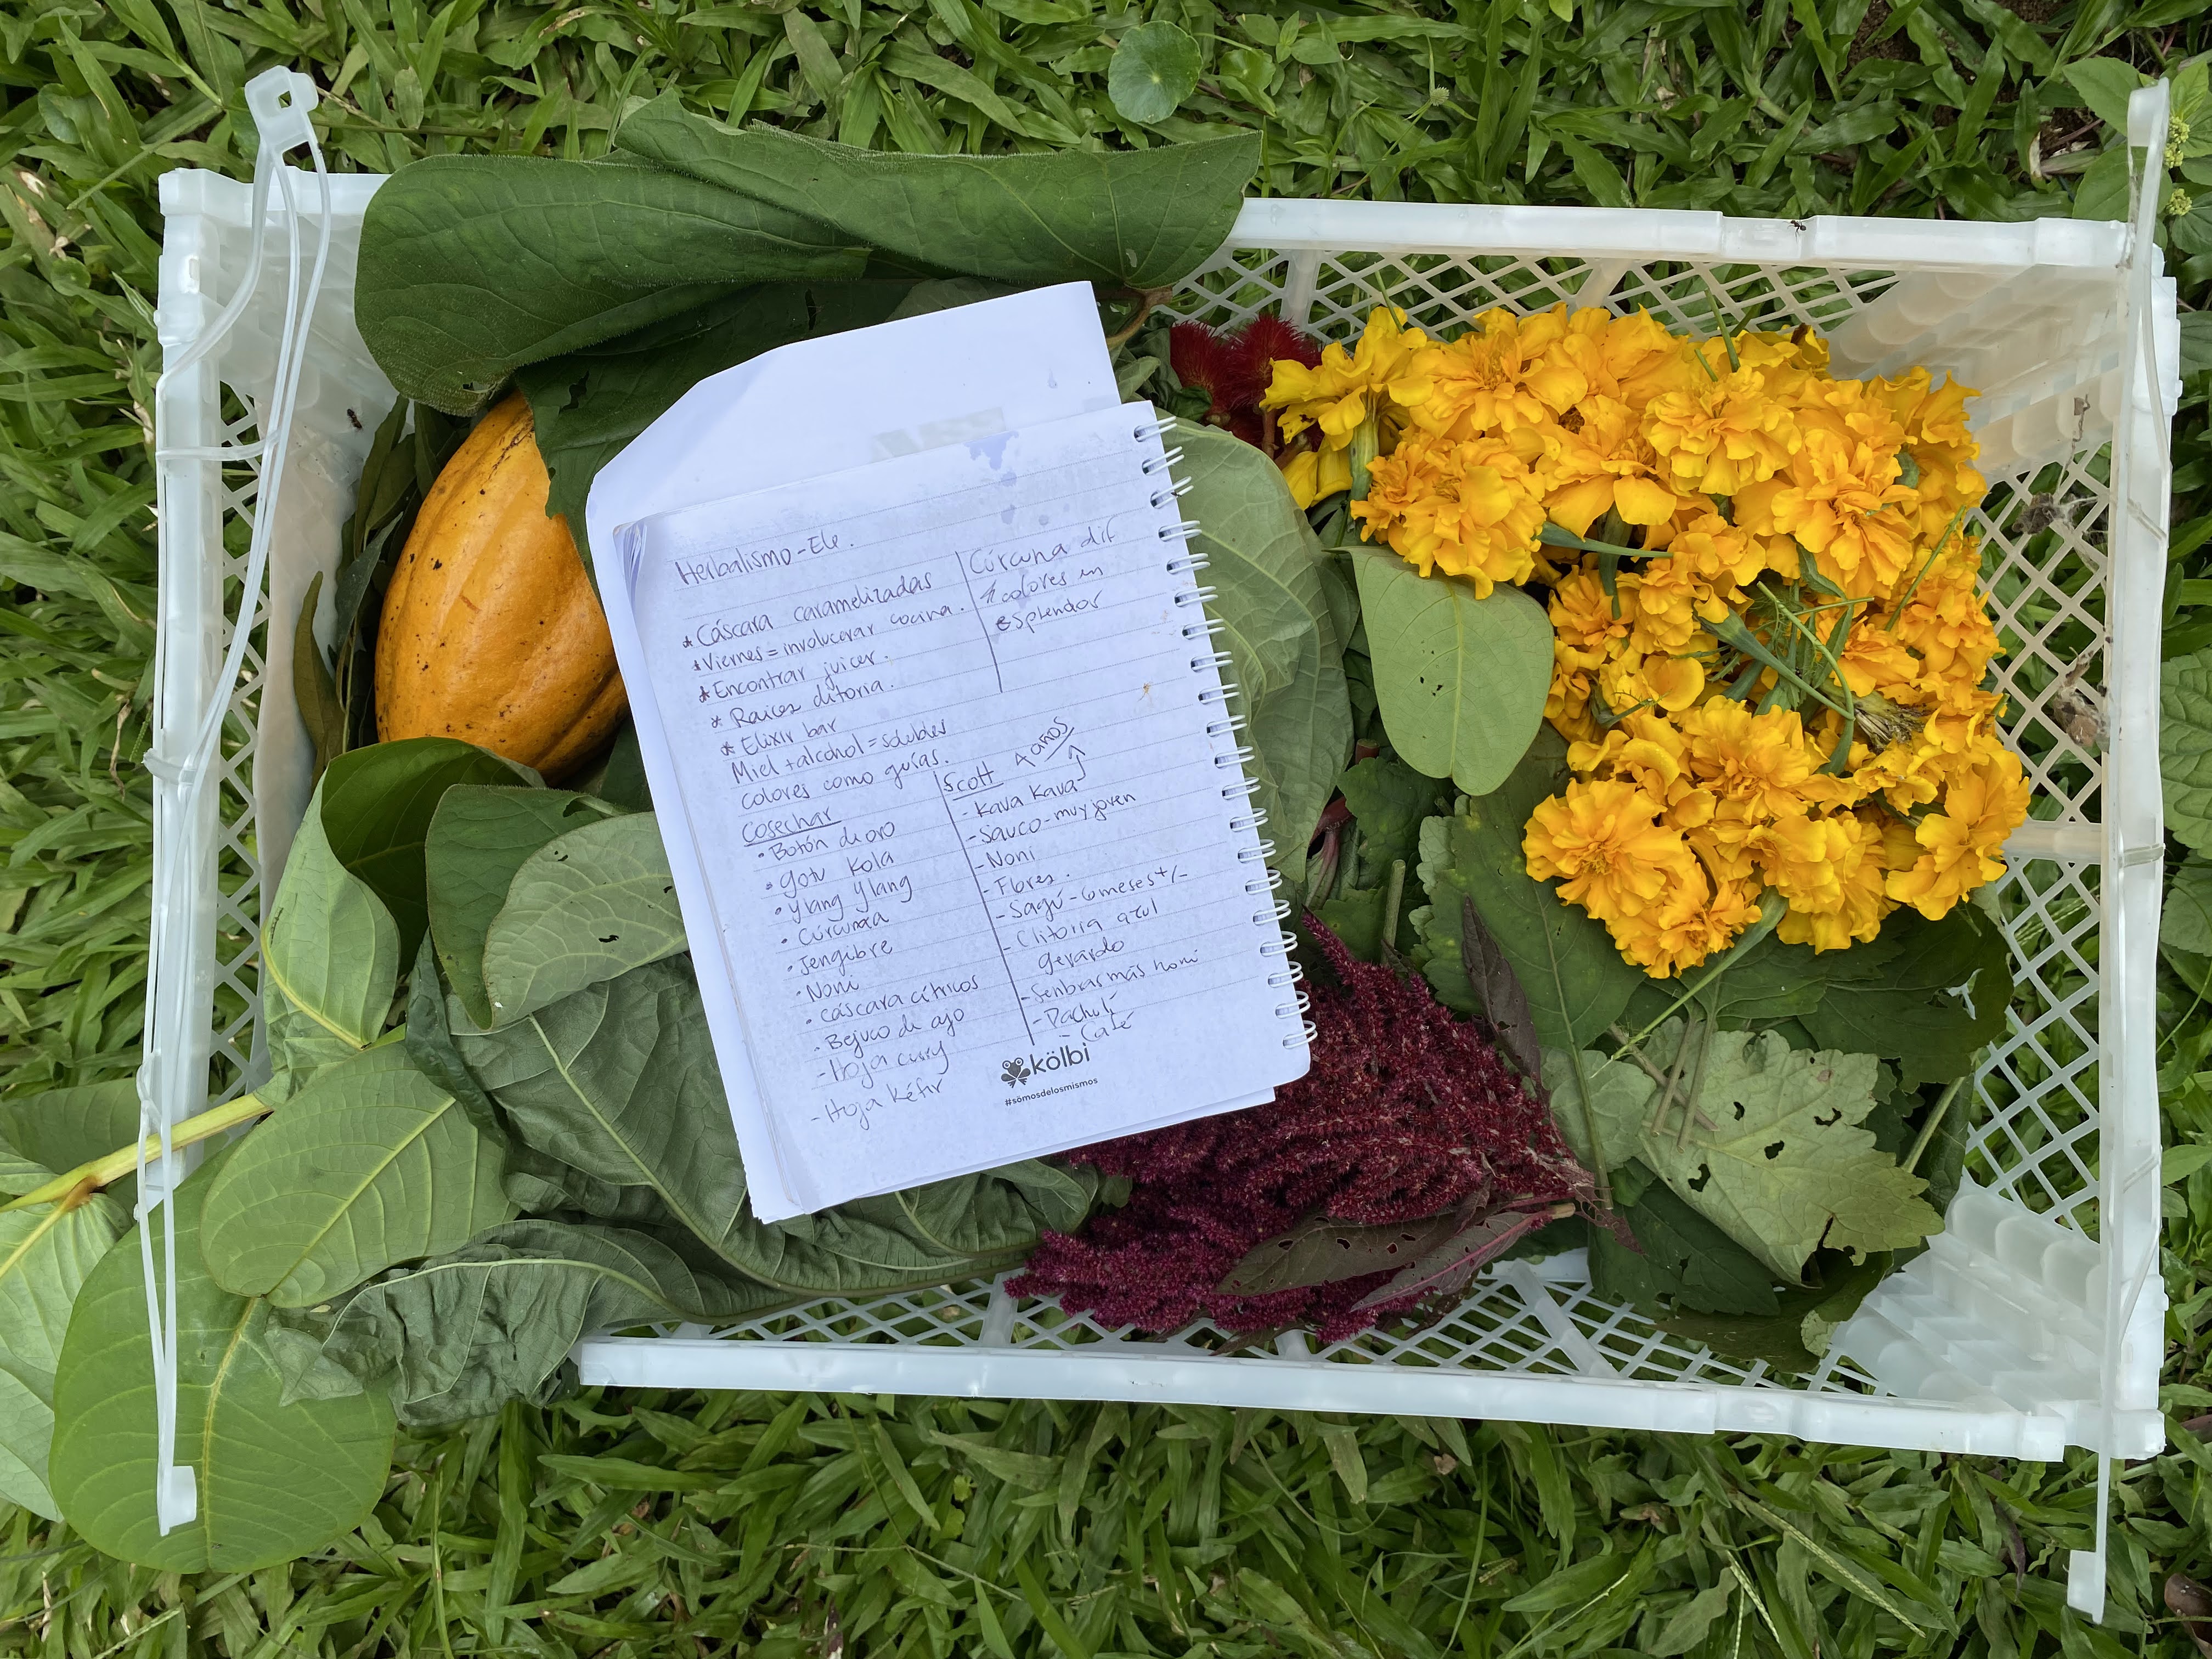 Herbalismo-Ele.
* Cáscara caramelizadas
* Viernes = involucrar cocina.
* Encontrar juicer.
* Raices clitoria.
* Elixir bar
Miel + alcohol = solubles
colores como guías.
Cosechar
• Botón de oro
• gotu kola
• ylang ylang
• Cúrcuma
• Jengibre
• Noni
• cáscara cítricos
• Bejuco de ajo
- Hoja curry
- Hoja kéfir
Cúrcuna dif
colores en
esplendor
Scott 4 años
- Kava Kava
- Sauco - muy joven
- Noni
- Flores.
- Sagú - 6 meses +/-
- Clitoria azul
gerardo
- Senbrar más noni
- Pachulí
- Café
kölbi
#somosdelosmismos